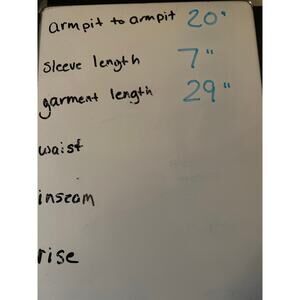 armpit to armpit 20"
sleeve length 7"
garment length 29"
waist
inseam
rise